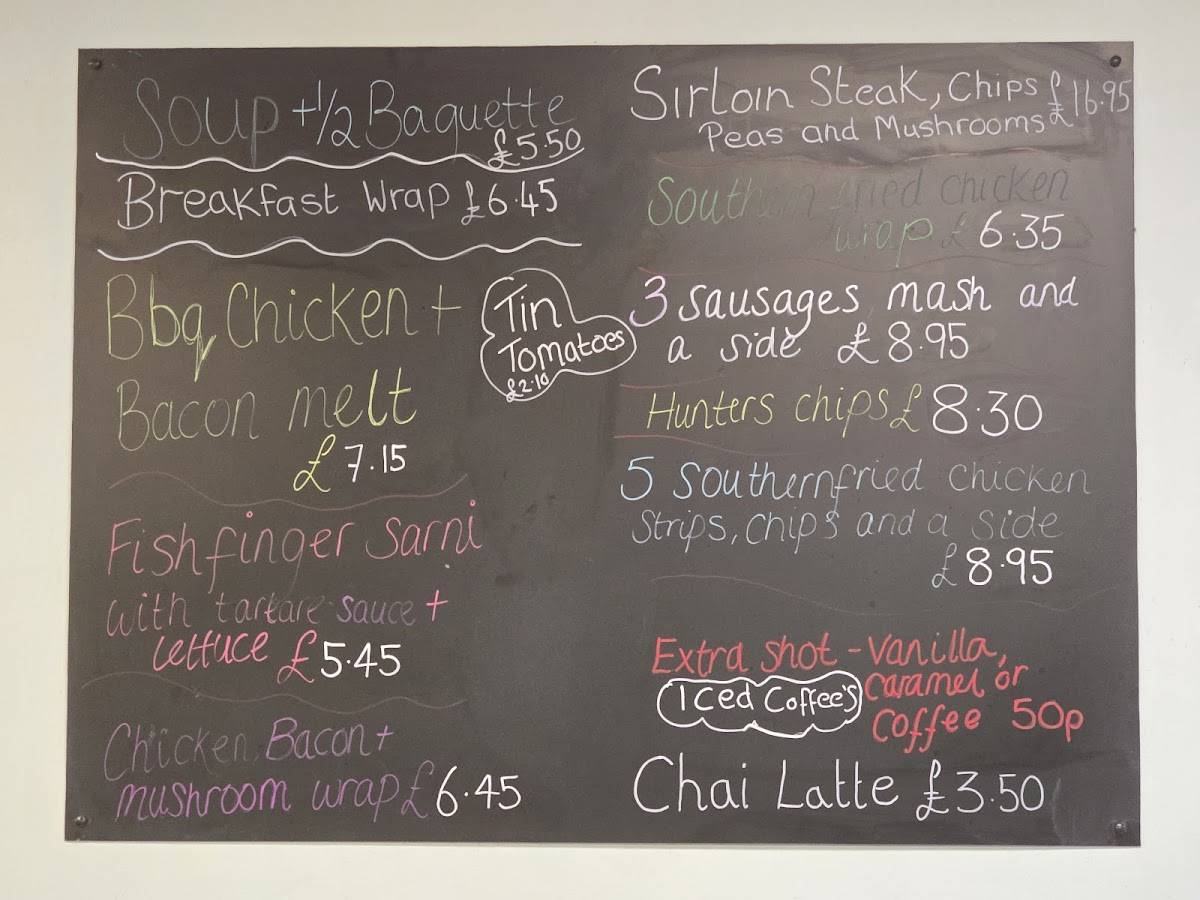 Soup + 1/2 Baguette
£5.50
Breakfast Wrap £6.45
Bbq Chicken +
Bacon melt
£7.15
Tin
Tomatoes
£2.10
Fishfinger Sarni
with tartare sauce +
lettuce £5.45
Chicken, Bacon +
mushroom wrap £6.45
Sirloin Steak, Chips £16.95
Peas and Mushrooms
Southern fried chicken
wrap £6.35
3 sausages, mash and
a side £8.95
Hunters chips £8.30
5 Southernfried chicken
Strips, chips and a side
£8.95
Extra shot - Vanilla,
caramel or
coffee 50p
Iced Coffee's
Chai Latte £3.50